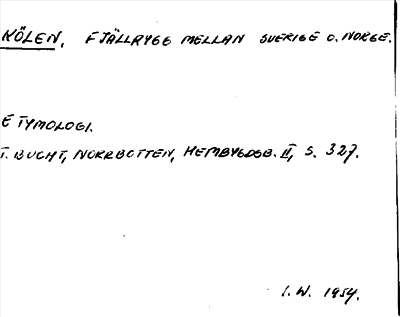 KÖLEN, FJÄLLRYGG MELLAN SVERIGE O. NORGE.
ETYMOLOGI.
T. BUCHT, NORRBOTTEN, HEMBYGDSB. II, S. 327.
I.W. 1954.